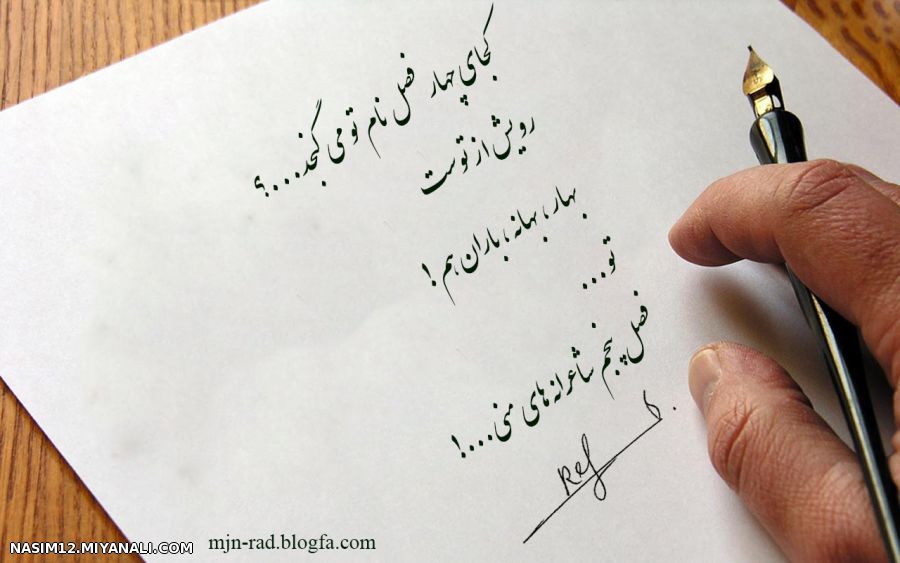 کجای چهار فصل نام تو می گنجد....؟
رویش از توست
بهار، بهانه، باران هم !
تو...
فصل پنجم شاعرانه های منی....!
Ref
mjn-rad.blogfa.com
NASIM12.MIYANALI.COM